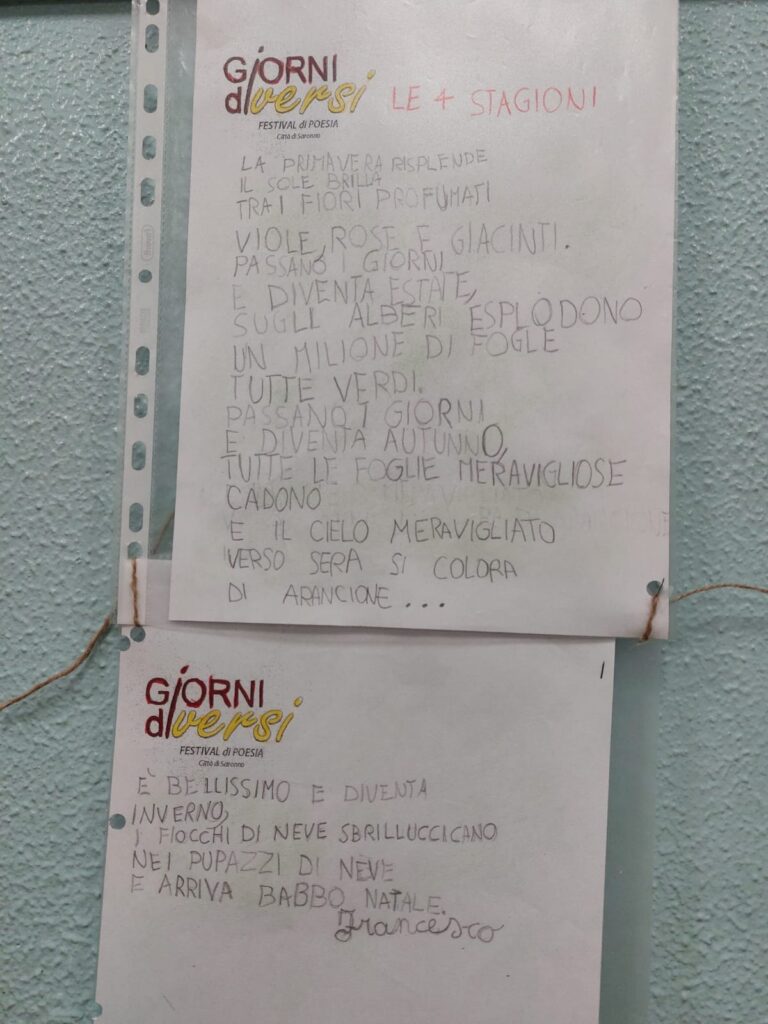 GIORNI
diversi
FESTIVAL di POESIA
Città di Saronno
LE 4 STAGIONI
LA PRIMAVERA RISPLENDE
IL SOLE BRILLA
TRA I FIORI PROFUMATI
VIOLE, ROSE E GIACINTI.
PASSANO I GIORNI
E DIVENTA ESTATE,
SUGLI ALBERI ESPLODONO
UN MILIONE DI FOGLE
TUTTE VERDI.
PASSANO I GIORNI
E DIVENTA AUTUNNO,
TUTTE LE FOGLIE MERAVIGLIOSE
CADONO
E IL CIELO MERAVIGLIATO
VERSO SERA SI COLORA
DI ARANCIONE...
1
GIORNI
diversi
FESTIVAL di POESIA
Città di Saronno
È BELLISSIMO E DIVENTA
INVERNO,
I FIOCCHI DI NEVE SBRILLUCCICANO
NEI PUPAZZI DI NEVE
E ARRIVA BABBO NATALE.
Francesco